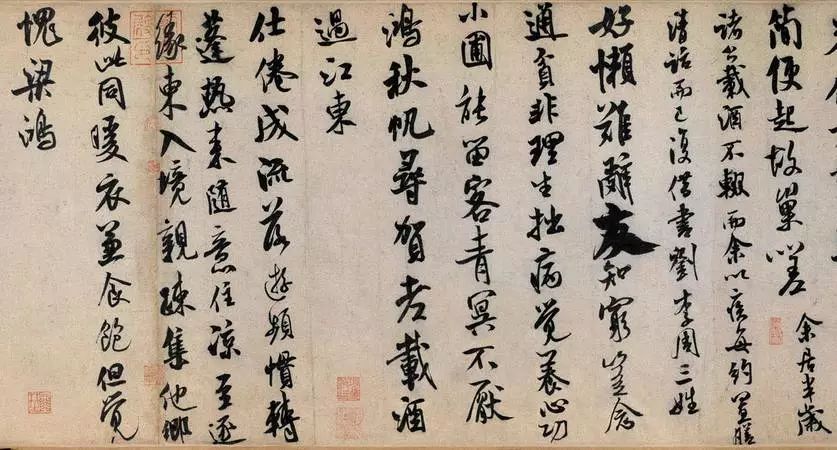 簡便起故巢嗟 余居半歲
諸公載酒不輟而余以疾每約置膳
清話而已復借書劉李周三姓
好懶難辭友知窮豈念
通貧非理生拙病覺養心功
小圃能留客青冥不厭
鴻秋帆尋賀老載酒
過江東
仕倦成流落遊頻慣轉
蓬熱來隨意住涼至逐
緣東入境親疎集他鄉
彼此同暖衣兼食飽但覺
愧梁鴻